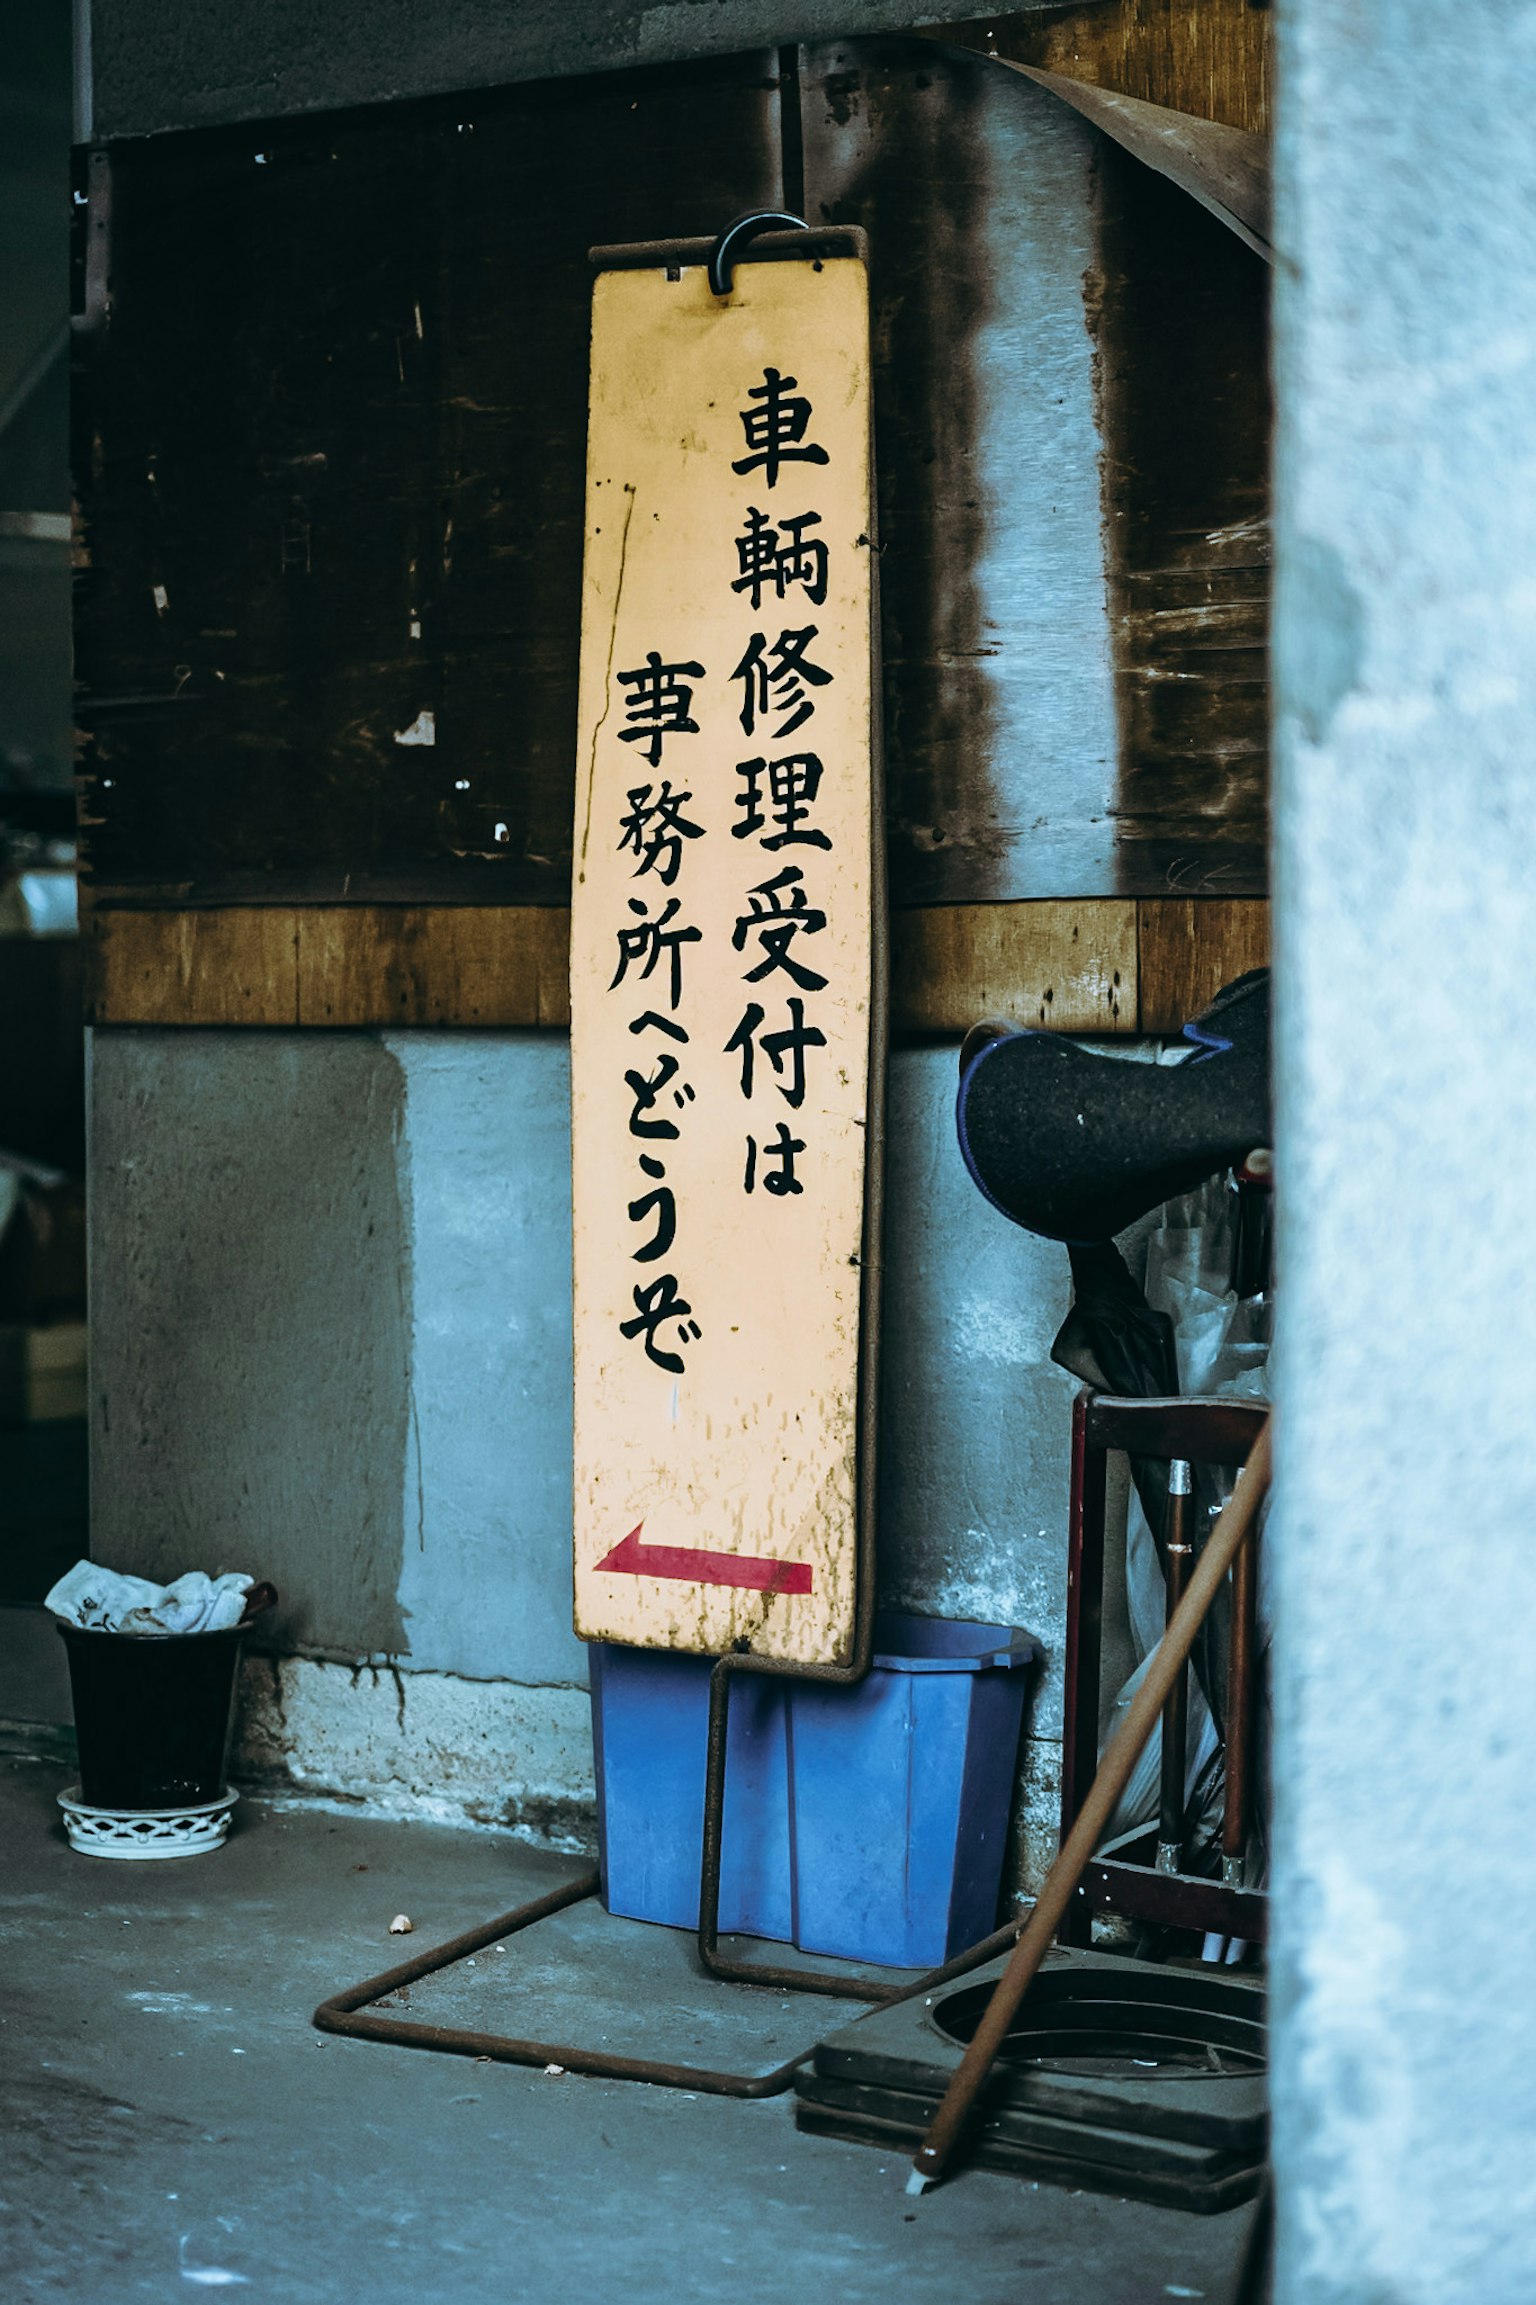 車輌修理受付は
事務所へどうぞ